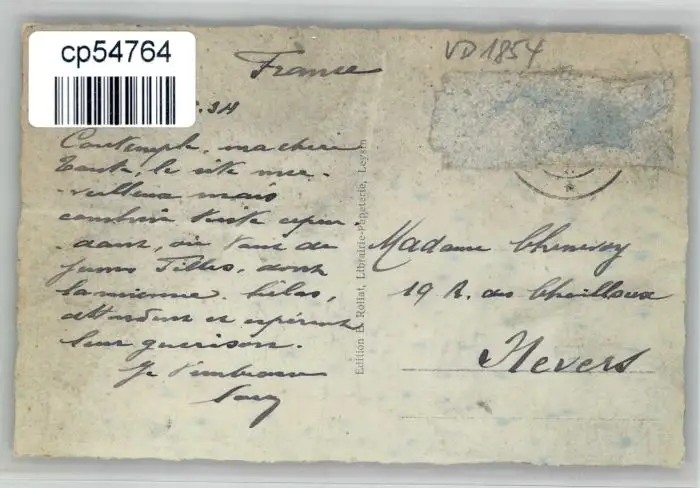 cp54764
France
VD1854
34
Contemple, ma chère
Tante, le site mer-
-veilleux mais
combien triste cepen-
-dant, où tant de
jeunes filles, dont
la mienne, hélas,
attendent et espèrent
leur guérison.
Je t'embrasse
Edition B. Rollat, Librairie-Papeterie, Leysin
Madame
19 R. des
Nevers